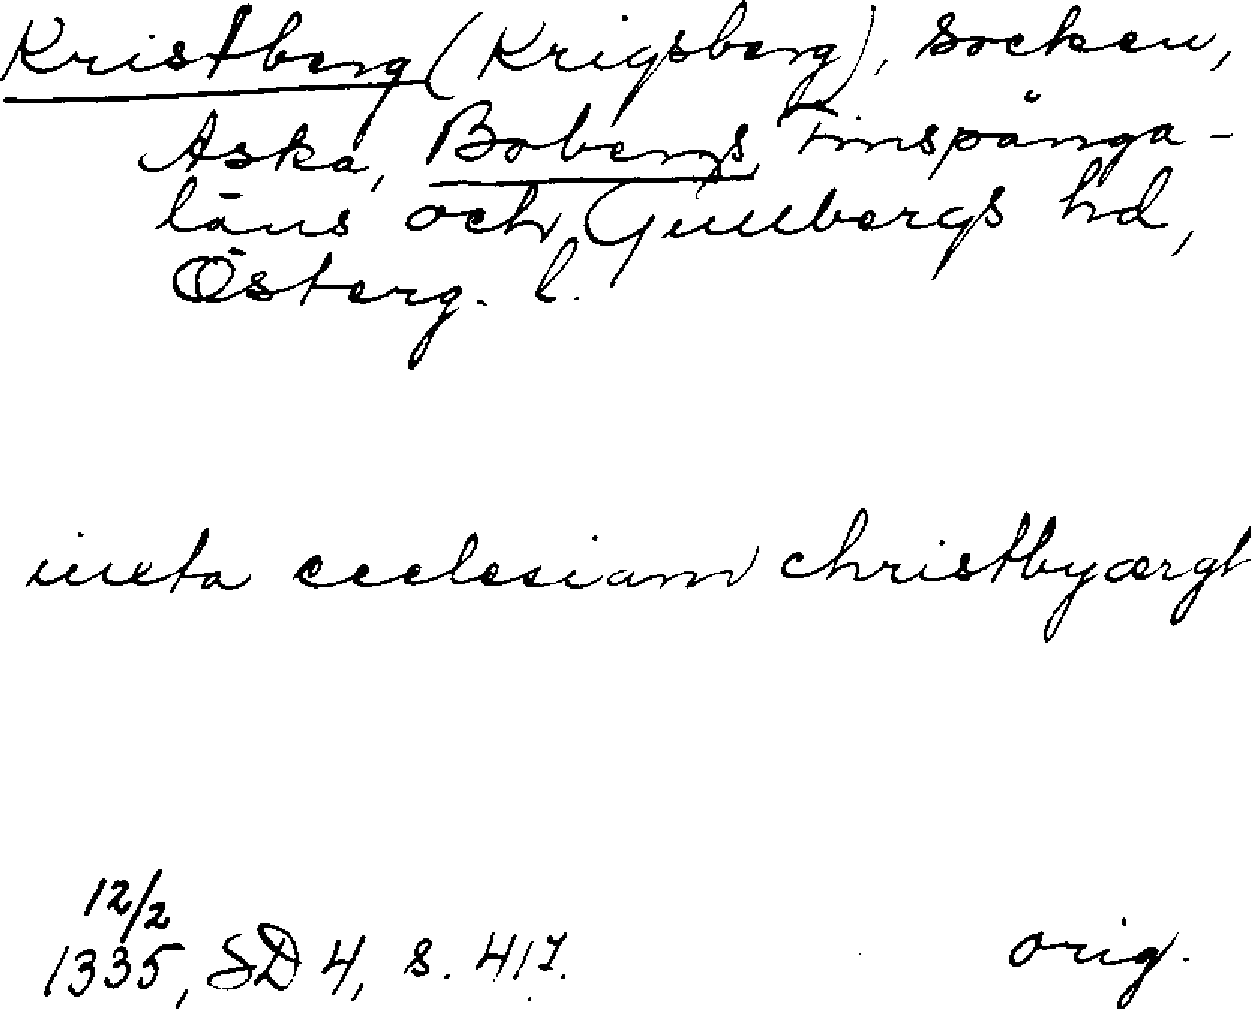 Kristberg (Krigsberg), socken,
Aska, Bobergs, Finspånga-
läns och Gullbergs hd,
Österg. l.
iuxta ecclesiam christbyærgh
12/2
1335, SD 4, s. 417. orig.